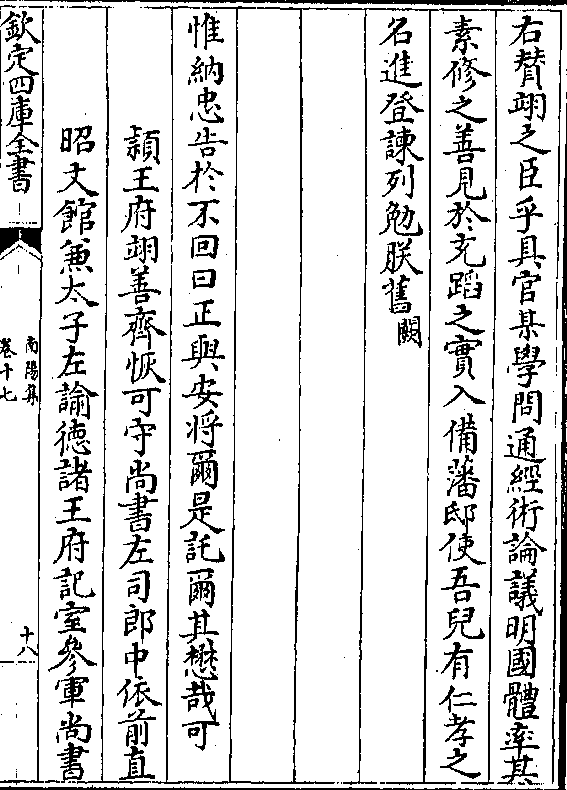 右賛翊之臣乎具官某學問通經術論議明國體率其
素修之善見於充蹈之實入備藩邸使吾兒有仁孝之
名進登諫列勉朕舊闕
惟納忠告於不回曰正與安將爾是託爾其懋哉可
潁王府翊善齊恢可守尚書左司郎中依前直
昭文館兼太子左諭德諸王府記室參軍尚書
欽定四庫全書
南陽集
卷十七
十八